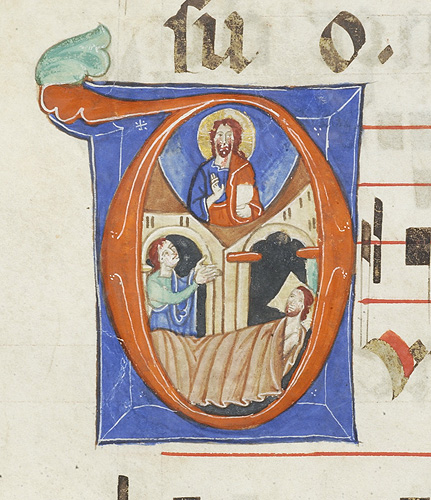 su o.
D